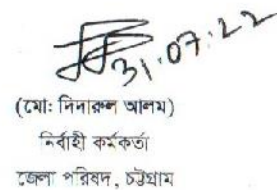 31.07.22
(মো: দিদারুল আলম)
নির্বাহী কর্মকর্তা
জেলা পরিষদ, চট্টগ্রাম